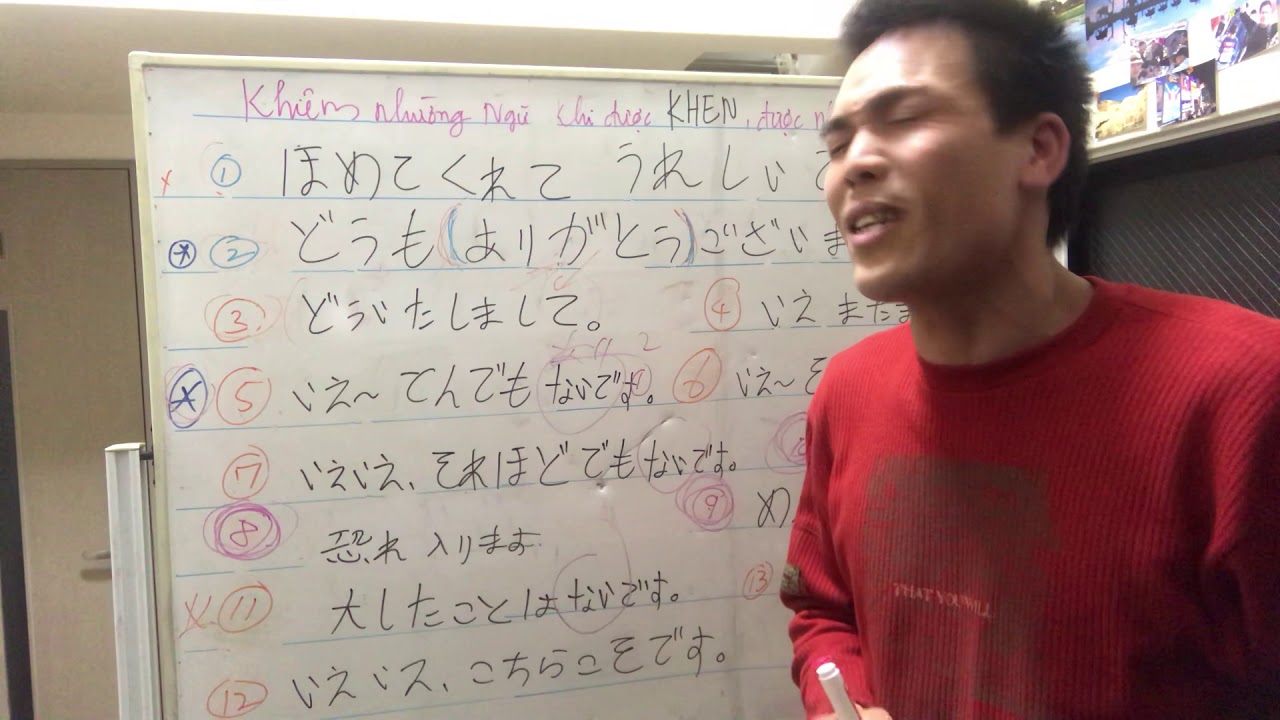 Khiêm nhường Ngữ khi được KHEN, được
① ほめてくれて うれしい
② どうも(ありがとう)ござい ま
③ どういたしまして。 ④ いえ まだま
⑤ いえ〜 てんでも ないです。 ⑥ いえ〜 そ
⑦ いえいえ、それほど でも ないです。
⑧ 恐れ入ります ⑨ め
⑪ 大したことは ないです。 ⑬
⑫ いえいえ、こちらこそです。
THAT YOU WILL